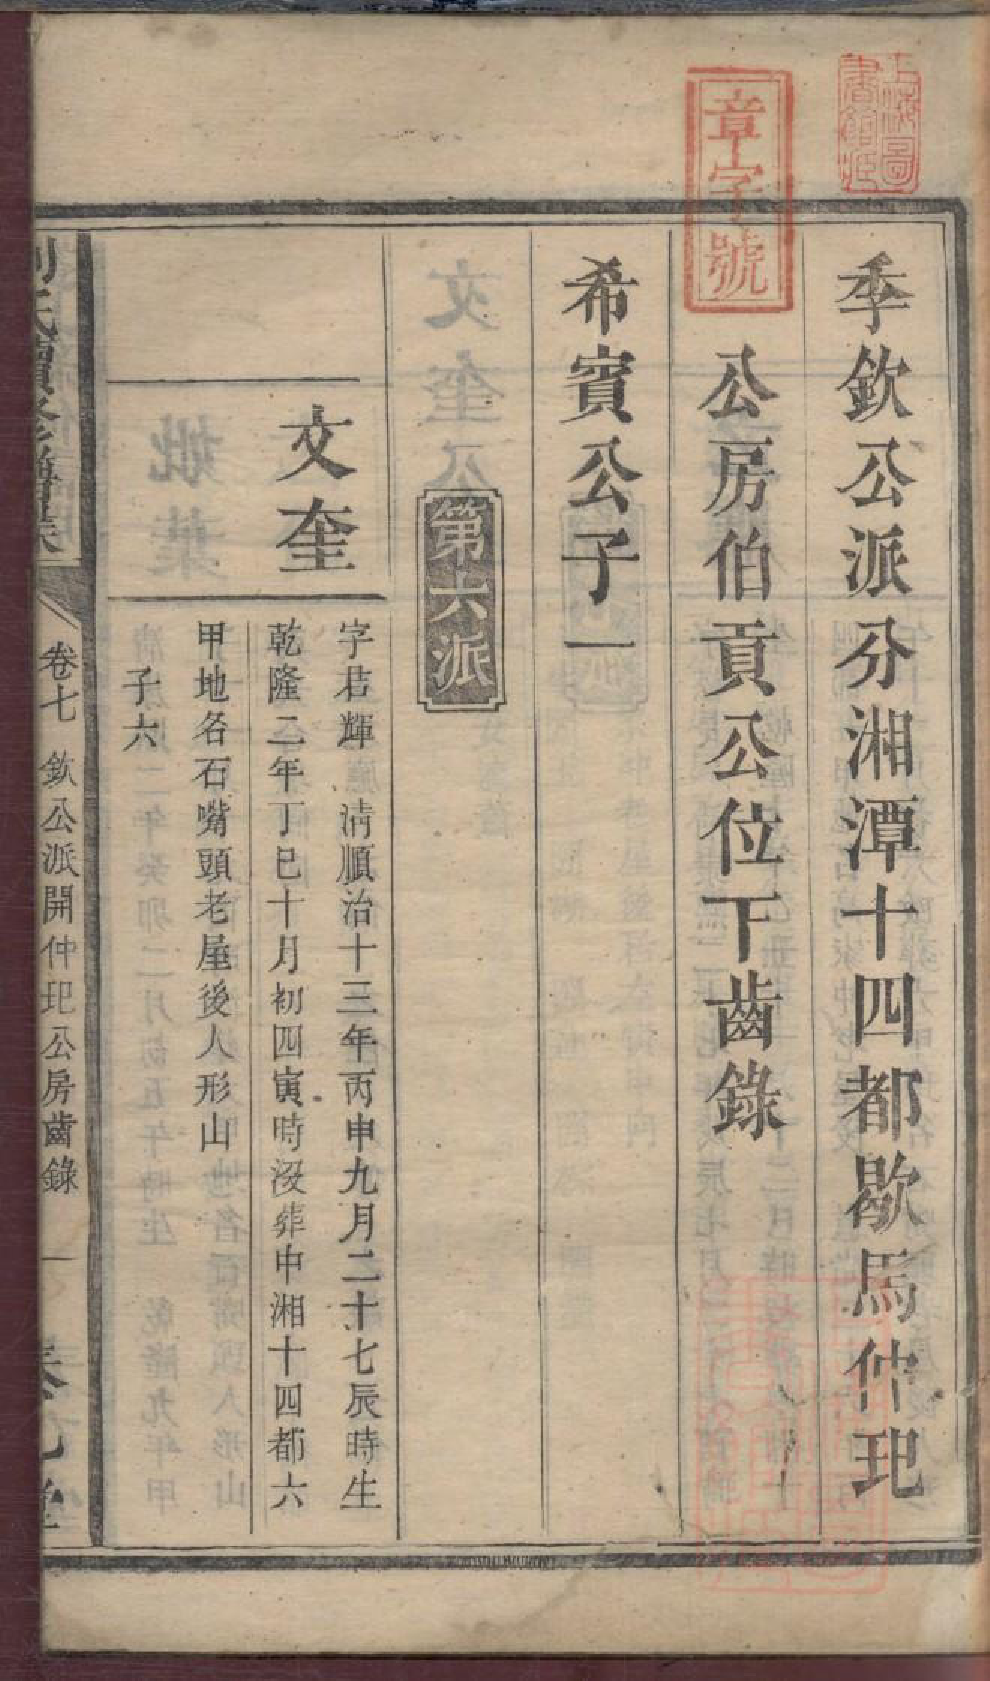 上海圖
書館藏
章字號
季欽公派分湘潭十四都歇馬仲玘
公房伯貢公位下齒錄
希賓公子一
第六派
文奎
字君輝 清順治十三年丙申九月二十七辰時生
乾隆二年丁巳十月初四寅時沒葬中湘十四都六
甲地名石嘴頭老屋後人形山
子六
氏續修譜
卷七 欽公派開仲玘公房齒錄 一